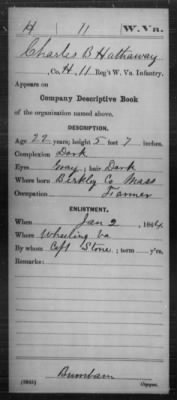 H 11 W. Va.
Charles B Hathaway
, Co. H, 11 Reg't W. Va. Infantry.
Appears on
Company Descriptive Book
of the organization named above.
DESCRIPTION.
Age 22 years; height 5 feet 7 inches.
Complexion Dark
Eyes Gray; hair Dark
Where born Berkly Co Mass
Occupation Farmer
ENLISTMENT.
When Jan 2, 1864.
Where Wheeling Va
By whom Capt Stone; term y'rs.
Remarks:
Burnham
Copyist.